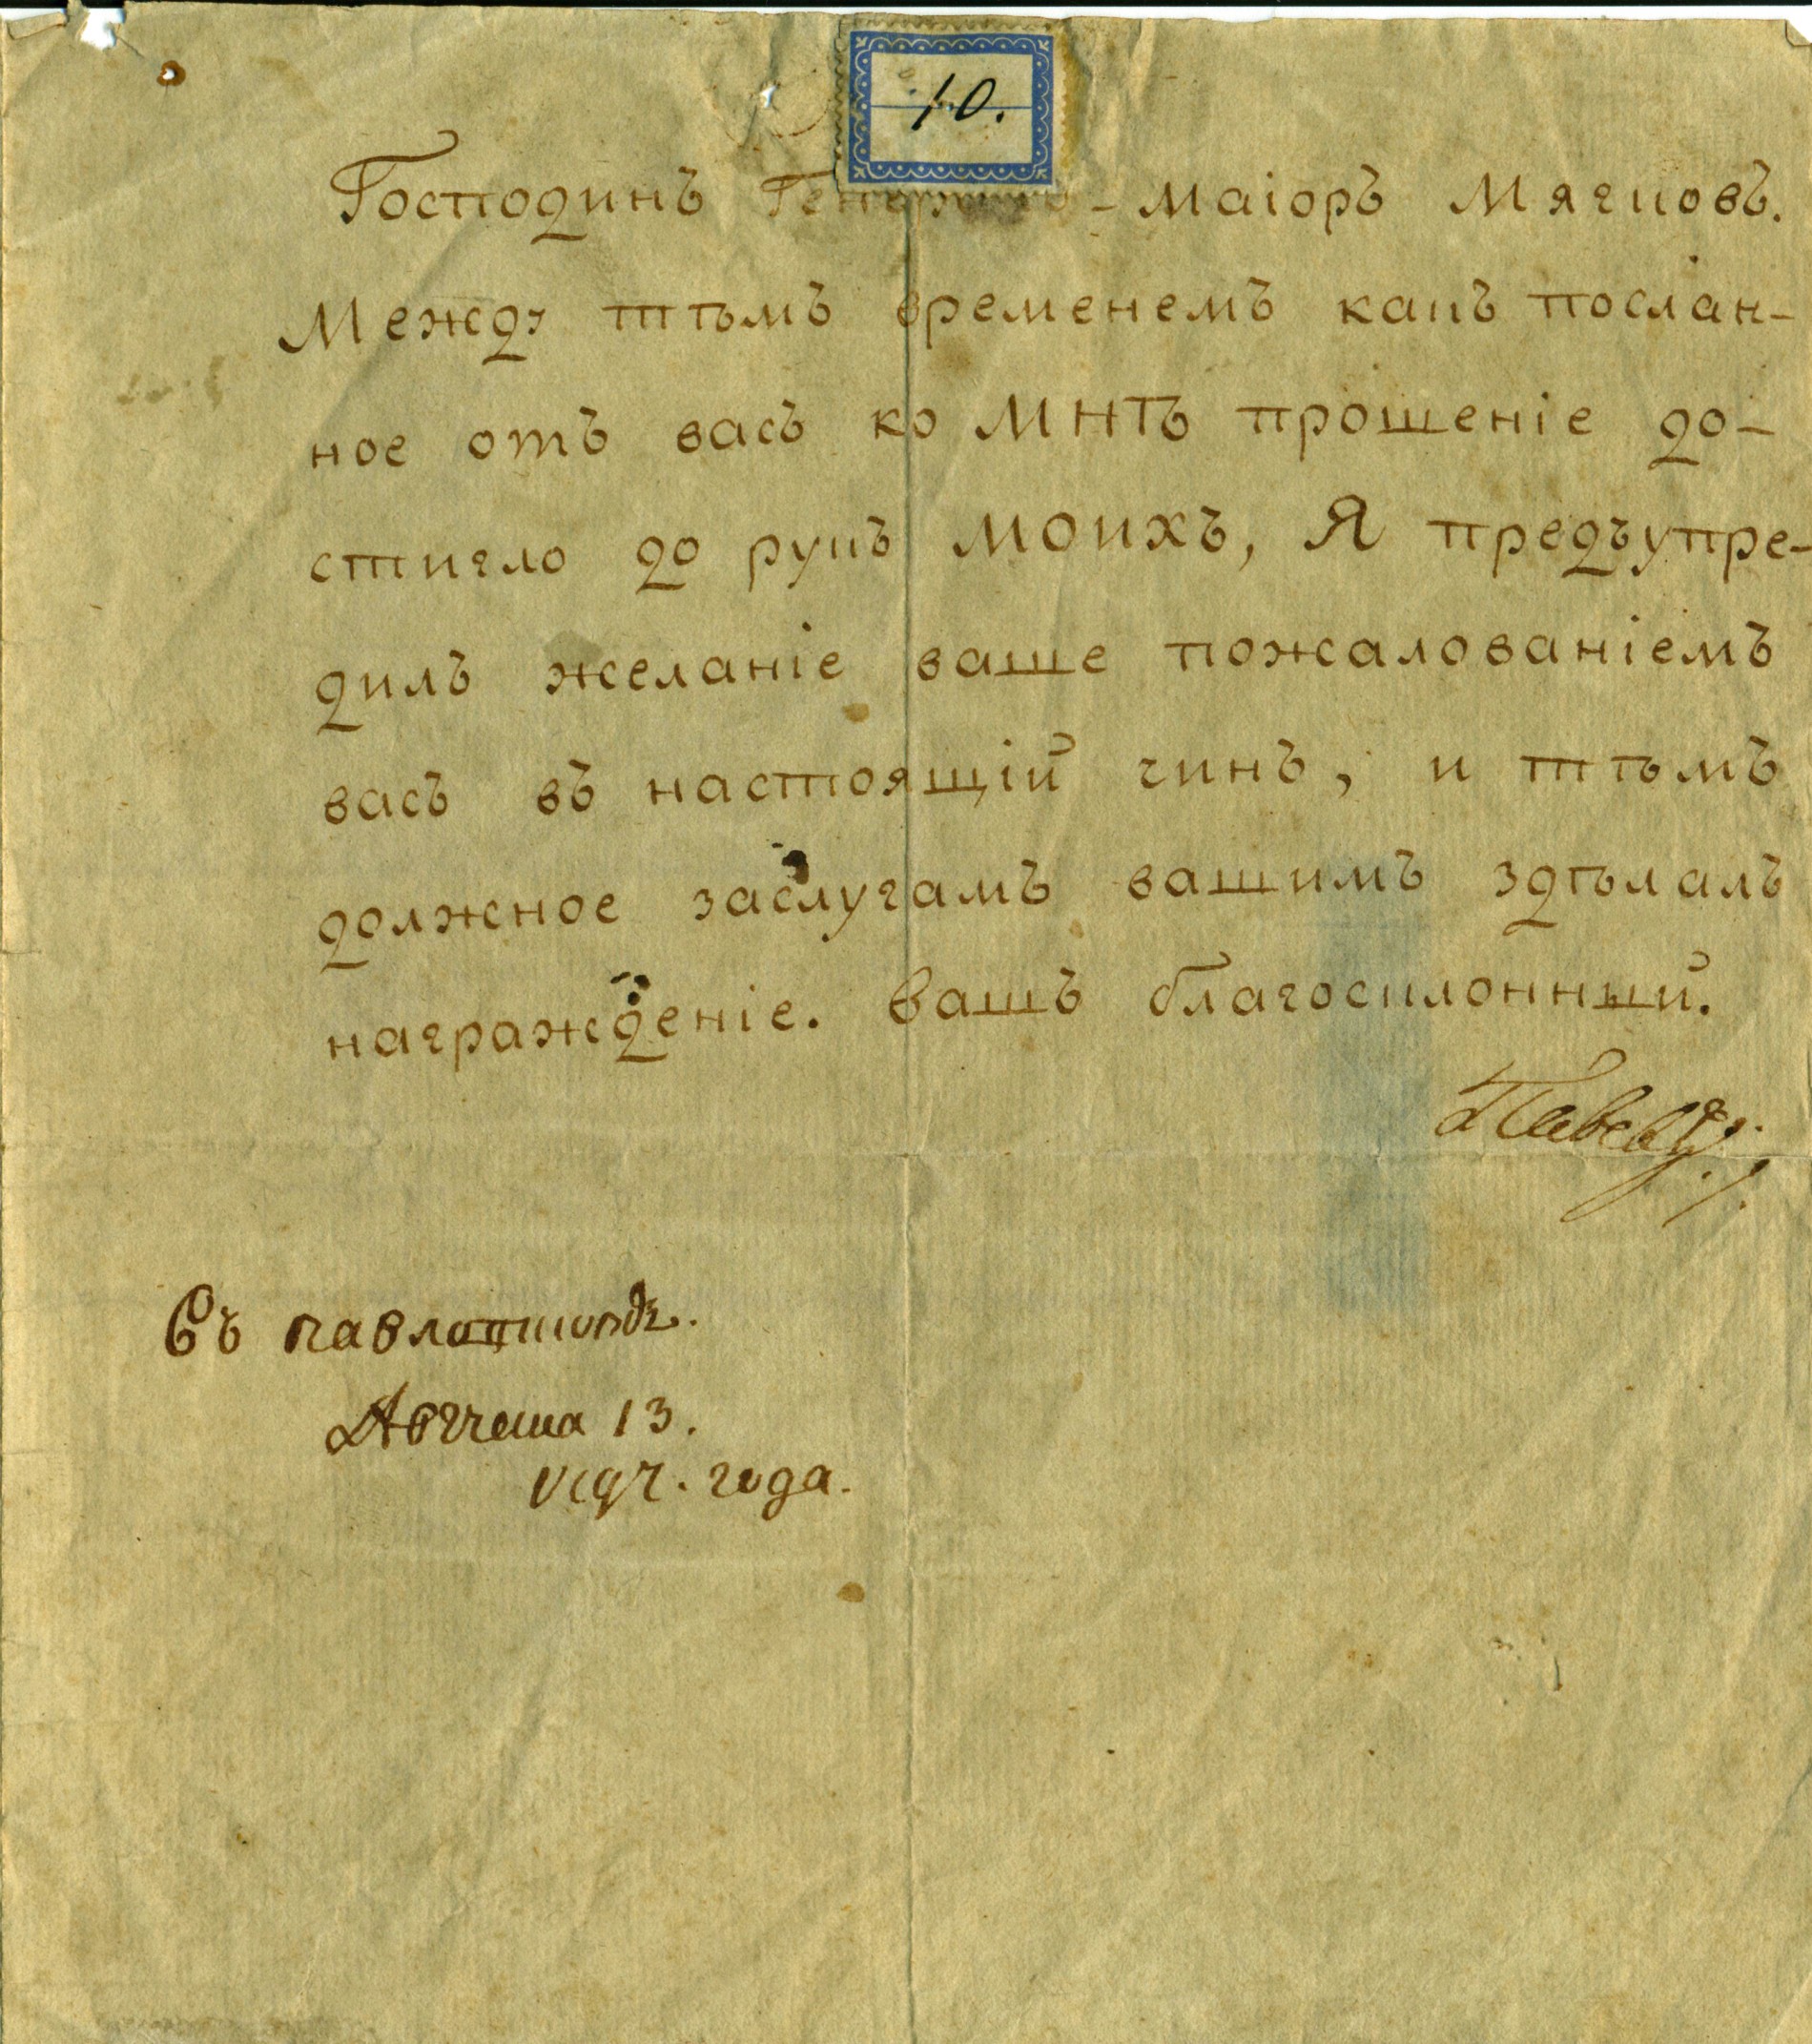 10.
Господинъ Генералъ-маіоръ Мягковъ.
Между тѣмъ временемъ какъ послан-
ное отъ васъ ко мнѣ прошеніе до-
стигло до рукъ моихъ, Я предъупре-
дилъ желаніе ваше пожалованіемъ
васъ въ настоящій чинъ, и тѣмъ
должное заслугамъ вашимъ здѣлалъ
награжденіе. Вашъ благосклонный.
Павелъ
Въ павлов
Августа 13.
года.